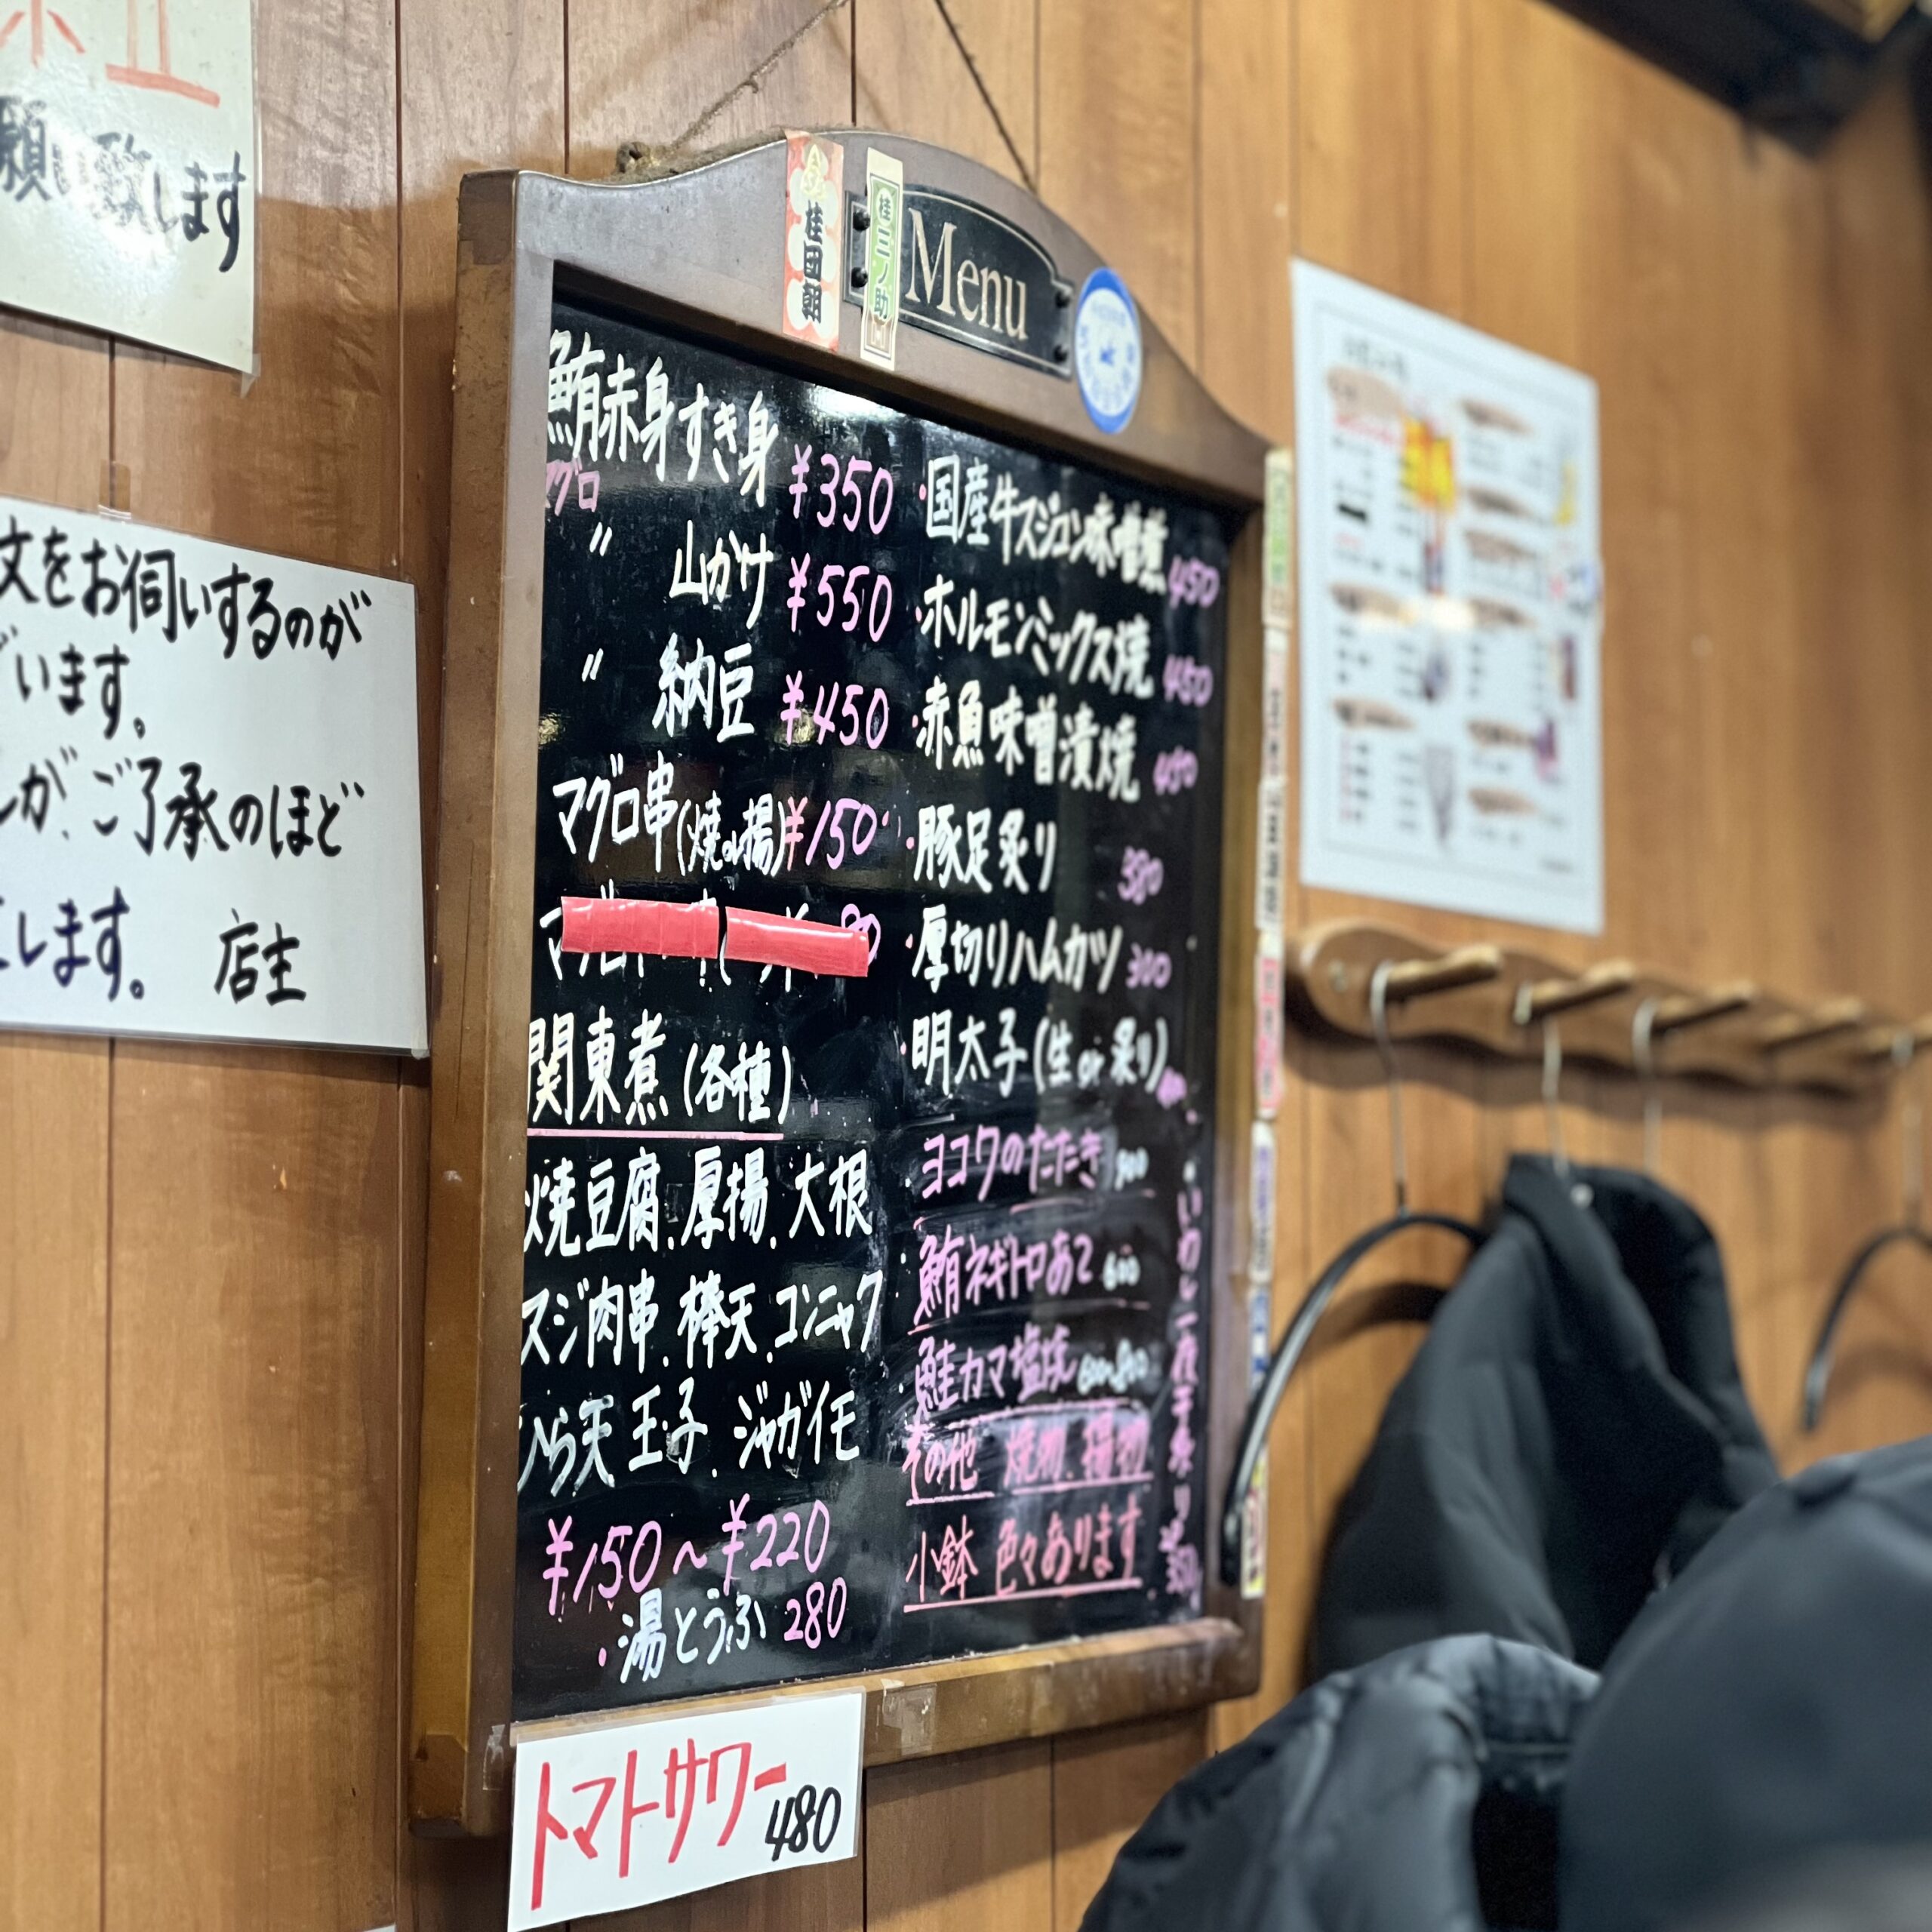 願い致します
文をお伺いするのが
います。
が、ご了承のほど
します。 店主
桂団朝
桂三ノ助
Menu
鮪赤身すき身 ¥350
マグロ
〃 山かけ ¥550
〃 納豆 ¥450
マグロ串(焼or揚)¥150
関東煮(各種)
焼豆腐.厚揚.大根
スジ肉串.棒天.コンニャク
ひら天.玉子.ジャガイモ
¥150~¥220
・湯とうふ 280
・国産牛スジコン味噌煮 450
・ホルモンミックス焼 450
・赤魚味噌漬焼 450
・豚足炙り 380
・厚切りハムカツ 300
・明太子(生or炙り)
ヨコワのたたき
鮪ネギトロあて 600
鮭カマ塩焼
その他 焼物、揚物
小鉢 色々あります
トマトサワー 480